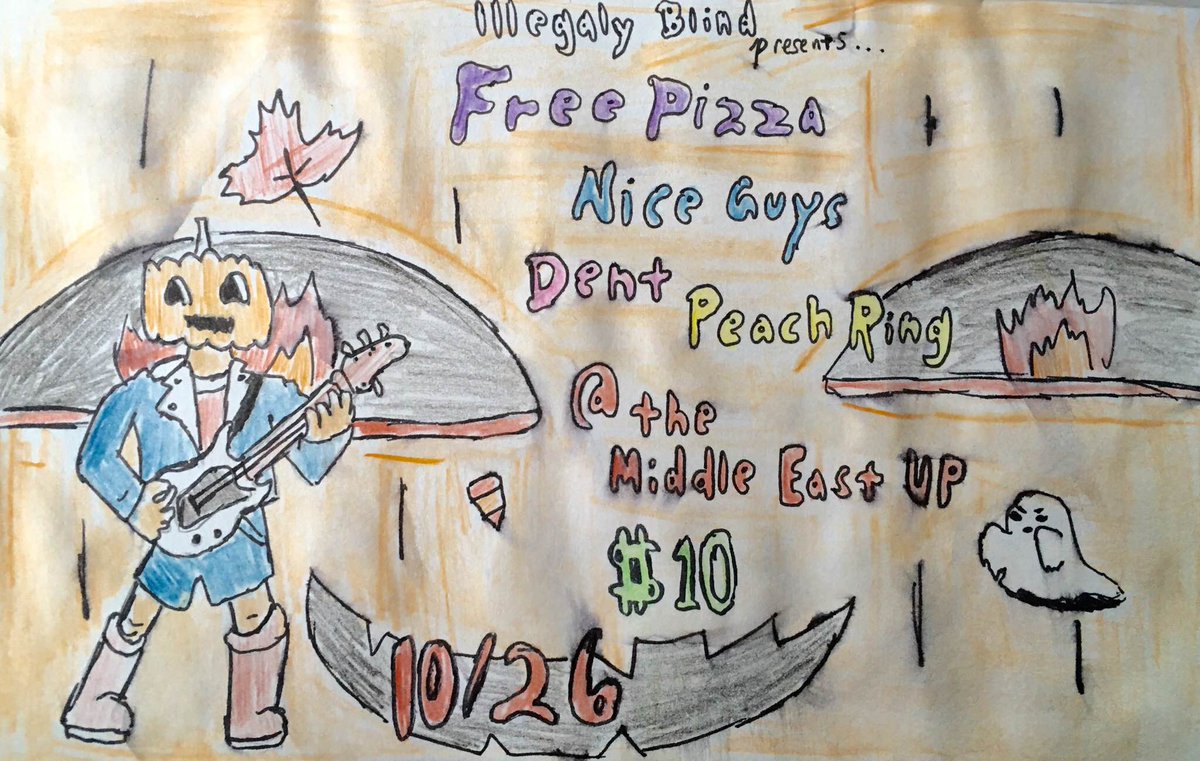 Illegaly Blind
presents...
Free Pizza
Nice Guys
Dent
Peach Ring
@ the
Middle East UP
$10
10/26